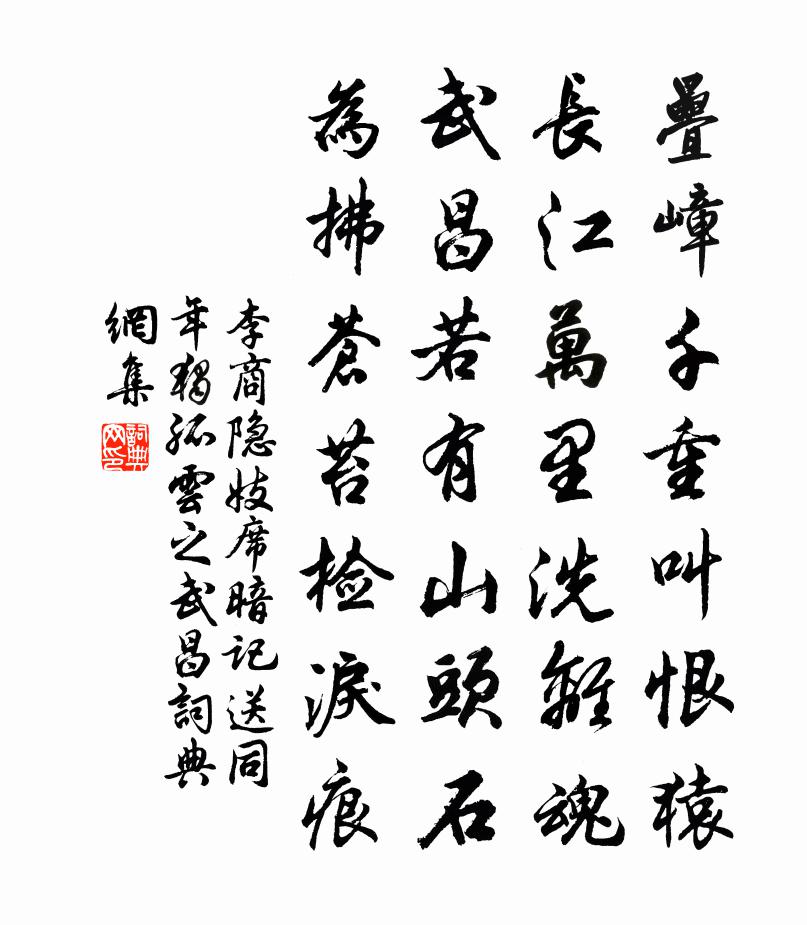 疊嶂千重叫恨猿
長江萬里洗離魂
武昌若有山頭石
為拂蒼苔檢淚痕
李商隐妓席暗記送同
年獨孤雲之武昌詞典
網集
詞典
网印